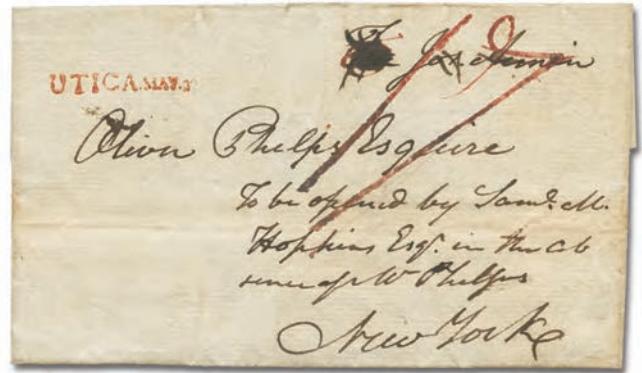 UTICA.MAY.
Oliver Phelps Esquire
To be opened by Saml. M.
Hopkins Esqr. in the ab
sence of Mr Phelps
New York